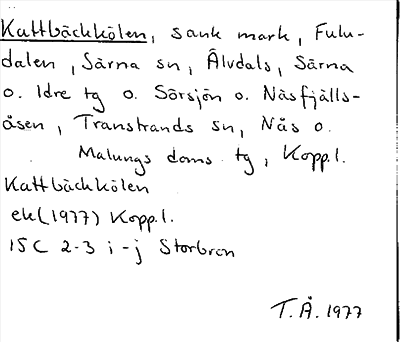 Kattbäckkölen, sank mark, Fulu-
dalen, Särna sn, Älvdals, Särna
o. Idre tg o. Sörsjön o. Näsfjälls-
åsen, Transtrands sn, Nås o.
Malungs doms. tg, Kopp.l.
Kattbäckkölen
ek(1977) Kopp.l.
15C 2-3 i-j Storbron
T.Å. 1977